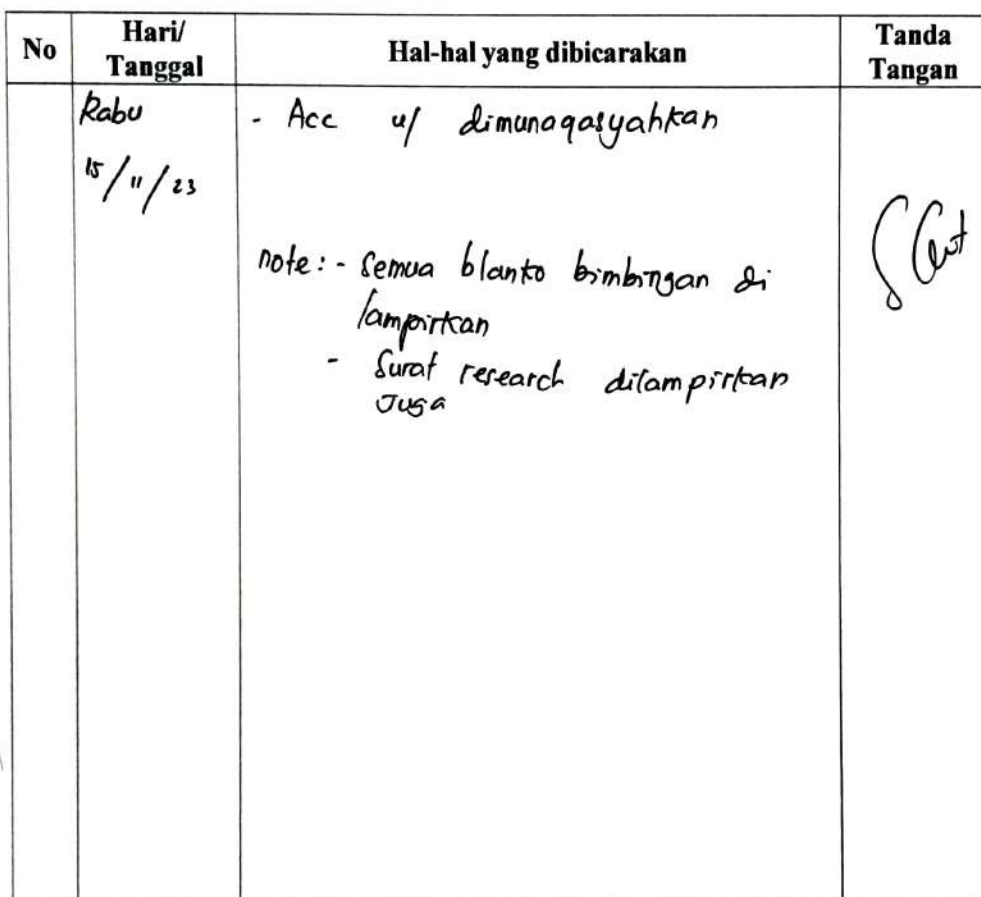 No
Hari/
Tanggal
Hal-hal yang dibicarakan
Tanda
Tangan
Rabu
15/11/23
- Acc u/ dimunaqasyahkan
note: - Semua blanko bimbingan di
lampirkan
- Surat research dilampirkan
Juga